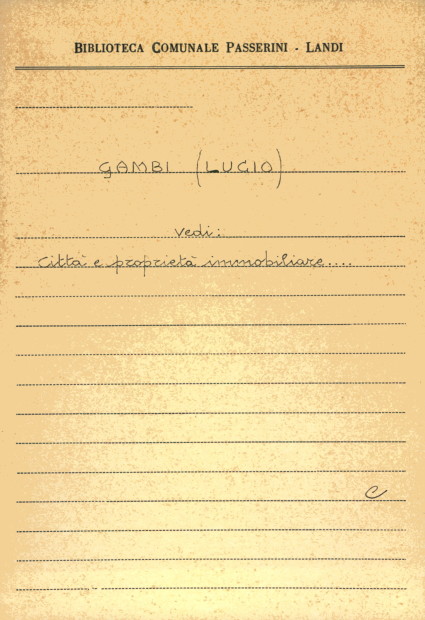 BIBLIOTECA COMUNALE PASSERINI - LANDI
GAMBI (LUCIO)
Vedi:
Città e proprietà immobiliare....
C